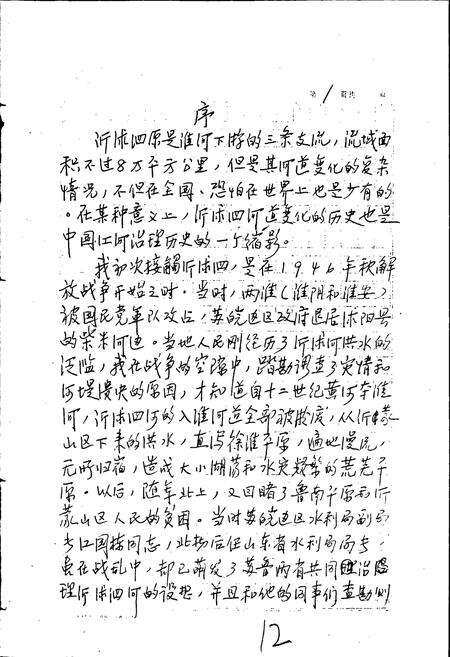 第 1 页共 页
序
沂沭泗原是淮河下游的三条支流，流域面
积不过8万平方公里，但是其河道变化的复杂
情况，不但在全国、恐怕在世界上也是少有的
。在某种意义上，沂沭泗河道变化的历史也是
中国江河治理历史的一个缩影。
我初次接触沂沭泗，是在1946年秋解
放战争开始之时。当时，两淮（淮阴和淮安）
被国民党军队攻占，苏皖边区政府退居沭阳县
的柴米河边。当地人民刚经历了沂沭河洪水的
泛滥，我在战争的空隙中，踏勘调查了灾情和
河堤溃决的原因，才知道自十二世纪黄河夺淮
河，沂沭泗河的入淮河道全部被淤废，从沂蒙
山区下来的洪水，直泻徐淮平原，遍地漫流，
无所归宿，造成大小湖荡和水灾频繁的荒芜平
原。以后，随军北上，又目睹了鲁南平原和沂
蒙山区人民的贫困。当时苏皖边区水利局副局
长江国栋同志，北撤后任山东省水利局局长，
在战乱中，却已萌发了苏鲁两省共同治
理沂沭泗河的设想，并且和他的同事们查勘
12